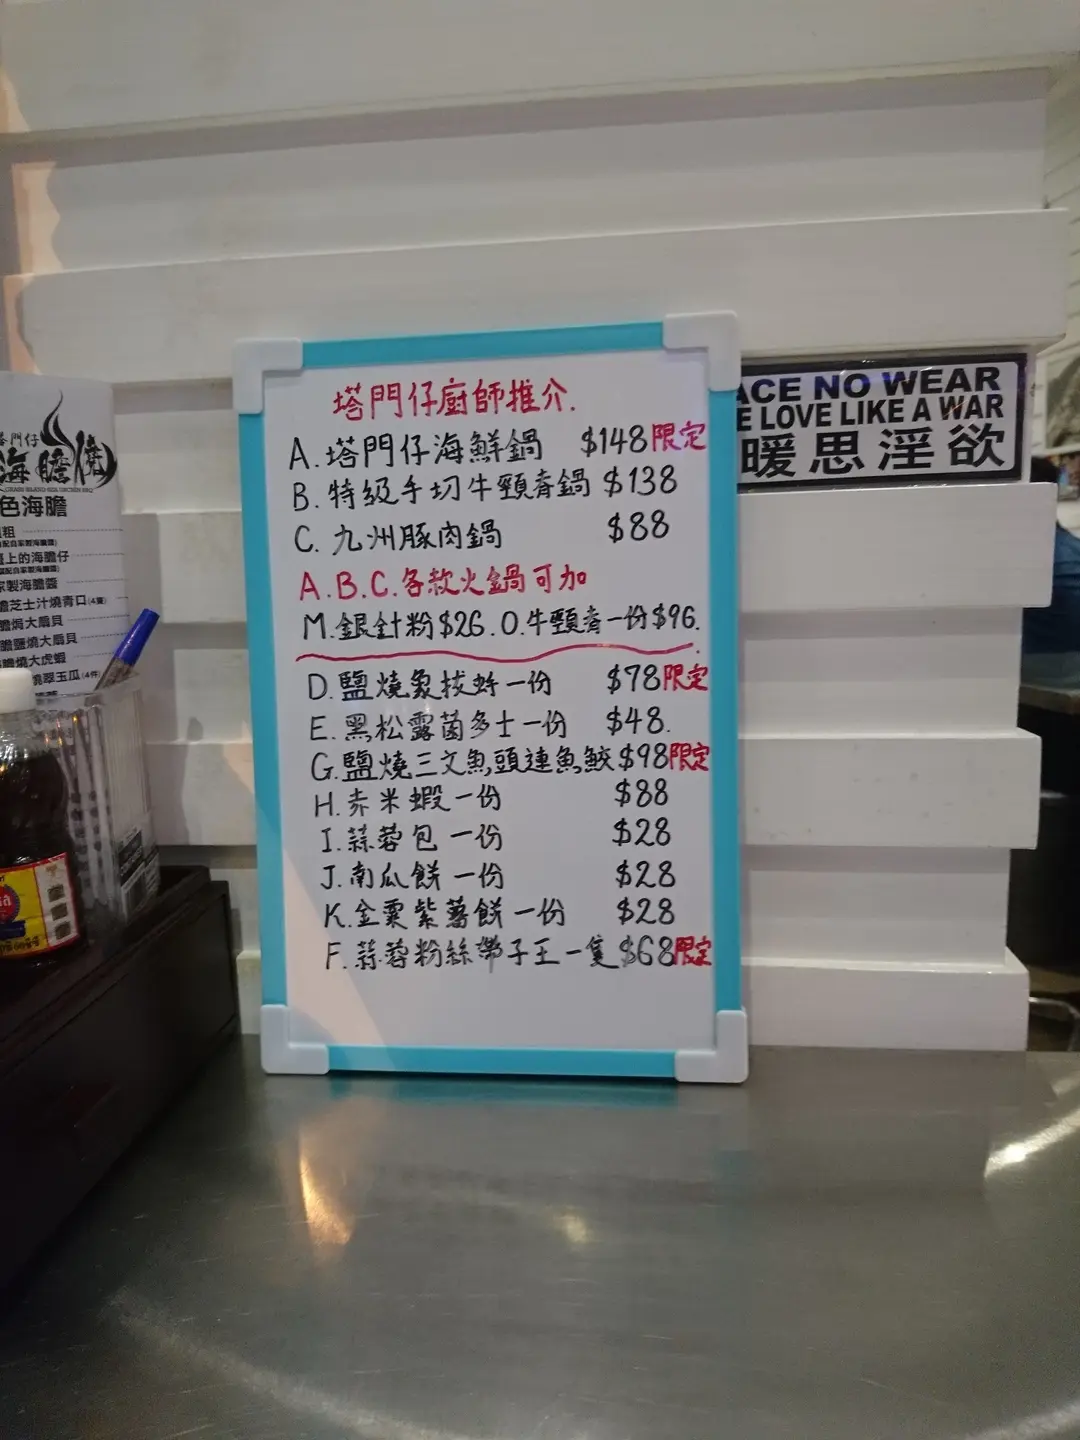 塔門仔廚師推介.
A.塔門仔海鮮鍋 $148限定
B.特級手切牛頸脊鍋 $138
C.九州豚肉鍋 $88
A.B.C.各款火鍋可加
M.銀針粉$26.O.牛頸脊一份$96.
D.鹽燒象拔蚌一份 $78限定
E.黑松露菌多士一份 $48.
G.鹽燒三文魚頭連魚鮫$98限定
H.赤米蝦一份 $88
I.蒜蓉包一份 $28
J.南瓜餅一份 $28
K.金粟紫薯餅一份 $28
F.蒜蓉粉絲帶子王一隻$68限定
ACE NO WEAR
E LOVE LIKE A WAR
暖思淫慾
門仔
海膽燒
色海膽
上的海膽仔
製海膽醬
芝士汁燒青口(4隻)
膽焗大扇貝
膽鹽燒大扇貝
膽燒大虎蝦
燒翠玉瓜(4件)